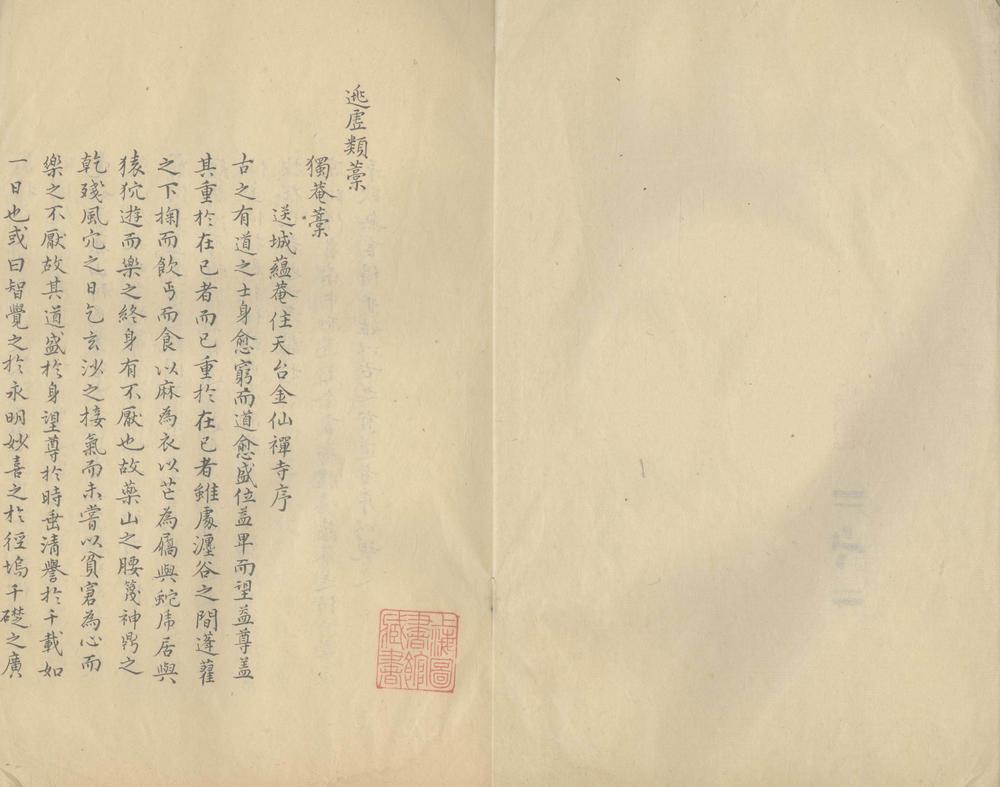 逃虛類藁
獨菴藁
送城蘊菴住天台金仙禪寺序
古之有道之士身愈窮而道愈盛位益卑而望益尊盖
其重於在已者而已重於在已者雖處瀍谷之間蓬藋
之下掬而飲丐而食以麻為衣以芒為屩與蛇虎居與
猿狖遊而樂之終身有不厭也故藥山之腰篾神鼎之
乾殘風穴之日乞玄沙之接氣而未嘗以貧窘為心而
樂之不厭故其道盛於身望尊於時垂清譽於千載如
一日也或曰智覺之於永明妙喜之於徑塢千礎之廣
上海圖書館藏書